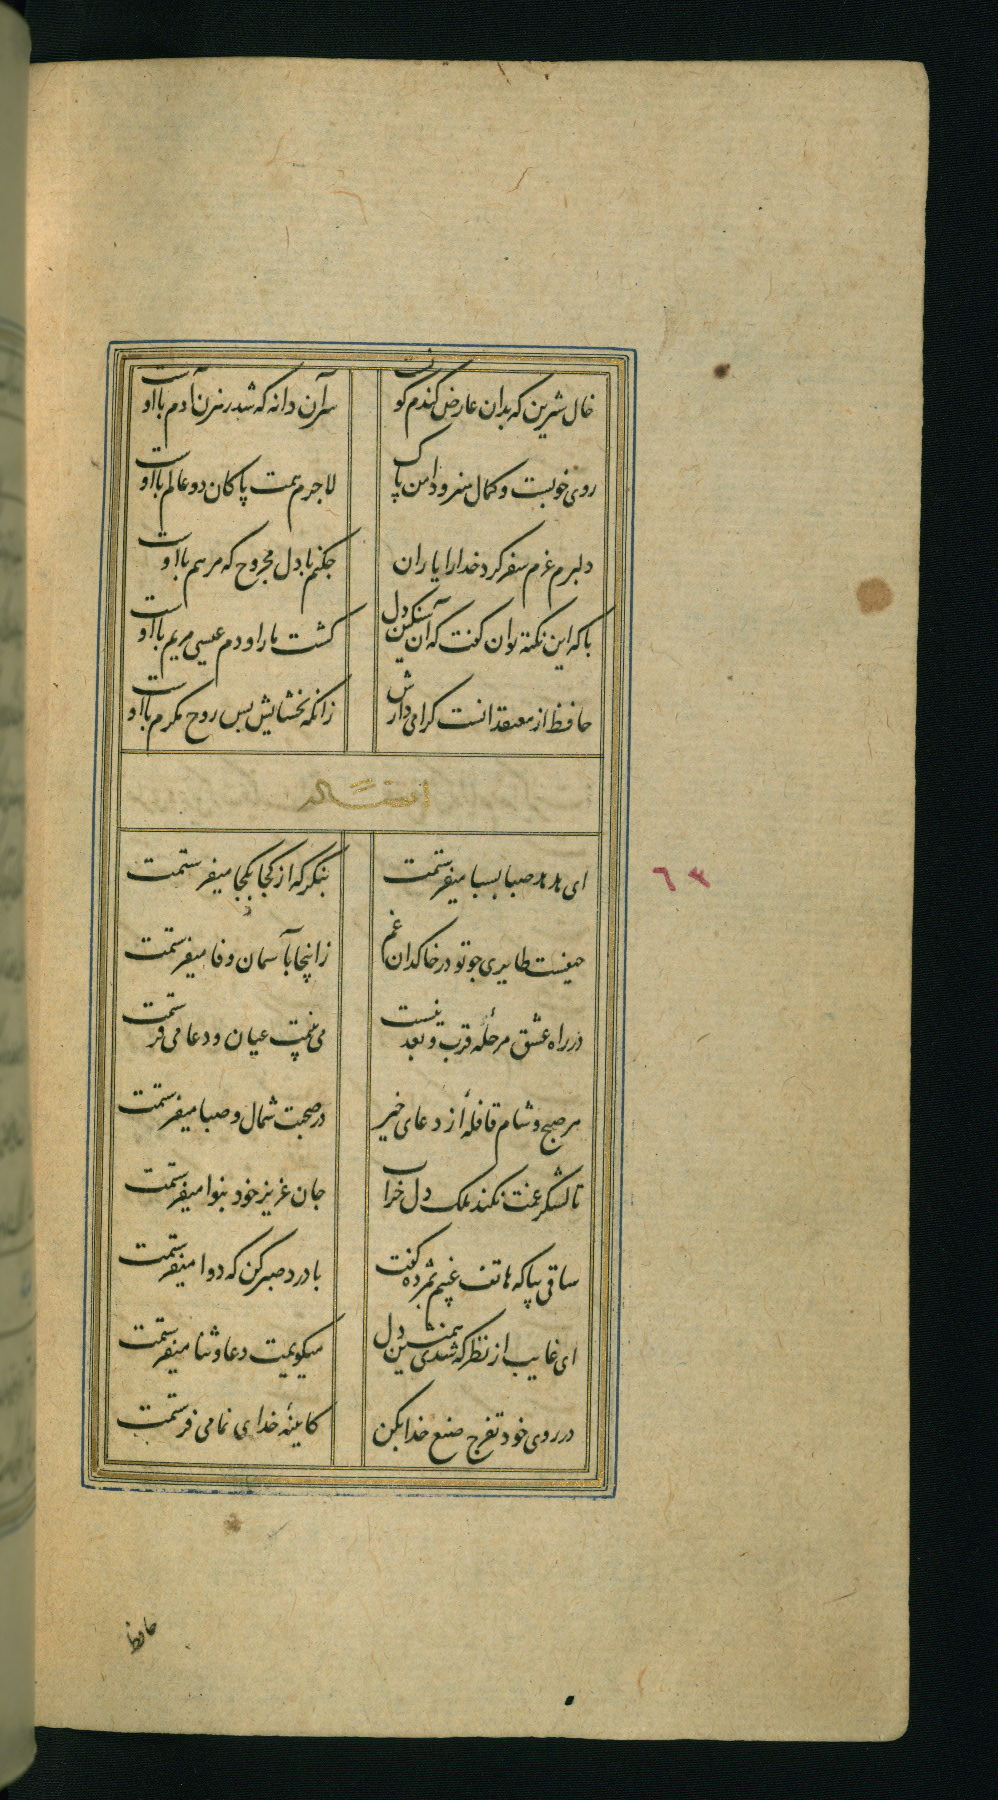 خال شیرین که بدان عارض گندم گونست سر آن دانه که شد رهزن آدم با اوست
روی خوبست و کمال هنر و دامن پاک لاجرم همت پاکان دو عالم با اوست
دلبرم عزم سفر کرد خدا را یاران چکنم با دل مجروح که مرهم با اوست
با که این نکته توان گفت که آن سنگین دل کشت ما را و دم عیسی مریم با اوست
حافظ از معتقدانست گرامی دارش زانکه بخشایش بس روح مکرم با اوست
ای هدهد صبا بسبا میفرستمت بنگر که از کجا بکجا میفرستمت
حیفست طایری چو تو در خاکدان غم زاینجا بآسمان وفا میفرستمت
در راه عشق مرحلهٔ قرب و بعد نیست می بینمت عیان و دعا می فرستمت
هر صبح و شام قافلهٔ از دعای خیر در صحبت شمال و صبا میفرستمت
تا لشکر غمت نکند ملک دل خراب جان عزیز خود بنوا میفرستمت
ساقی بیا که هاتف غیبم بمژده گفت با درد صبر کن که دوا میفرستمت
ای غایب از نظر که شدی همنشین دل میگویمت دعا و ثنا میفرستمت
در روی خود تفرج صنع خدا بکن کاینهٔ خدای نما می فرستمت
حافظ